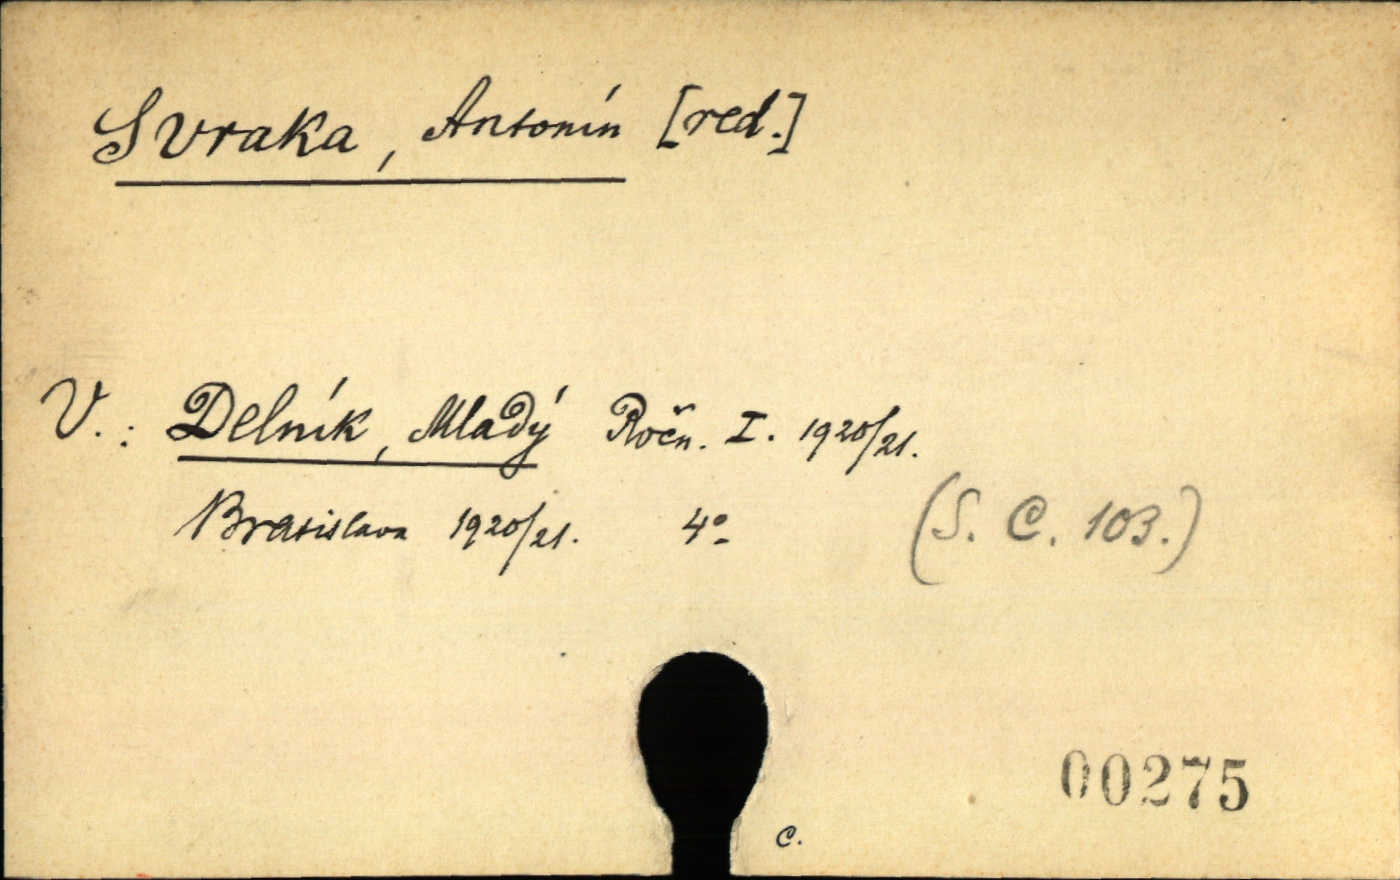 Svraka, Antonín [red.]
V.: Delník, Mladý Ročn. I. 1920/21.
Bratislava 1920/21. 4°
(S. C. 103.)
00275
C.